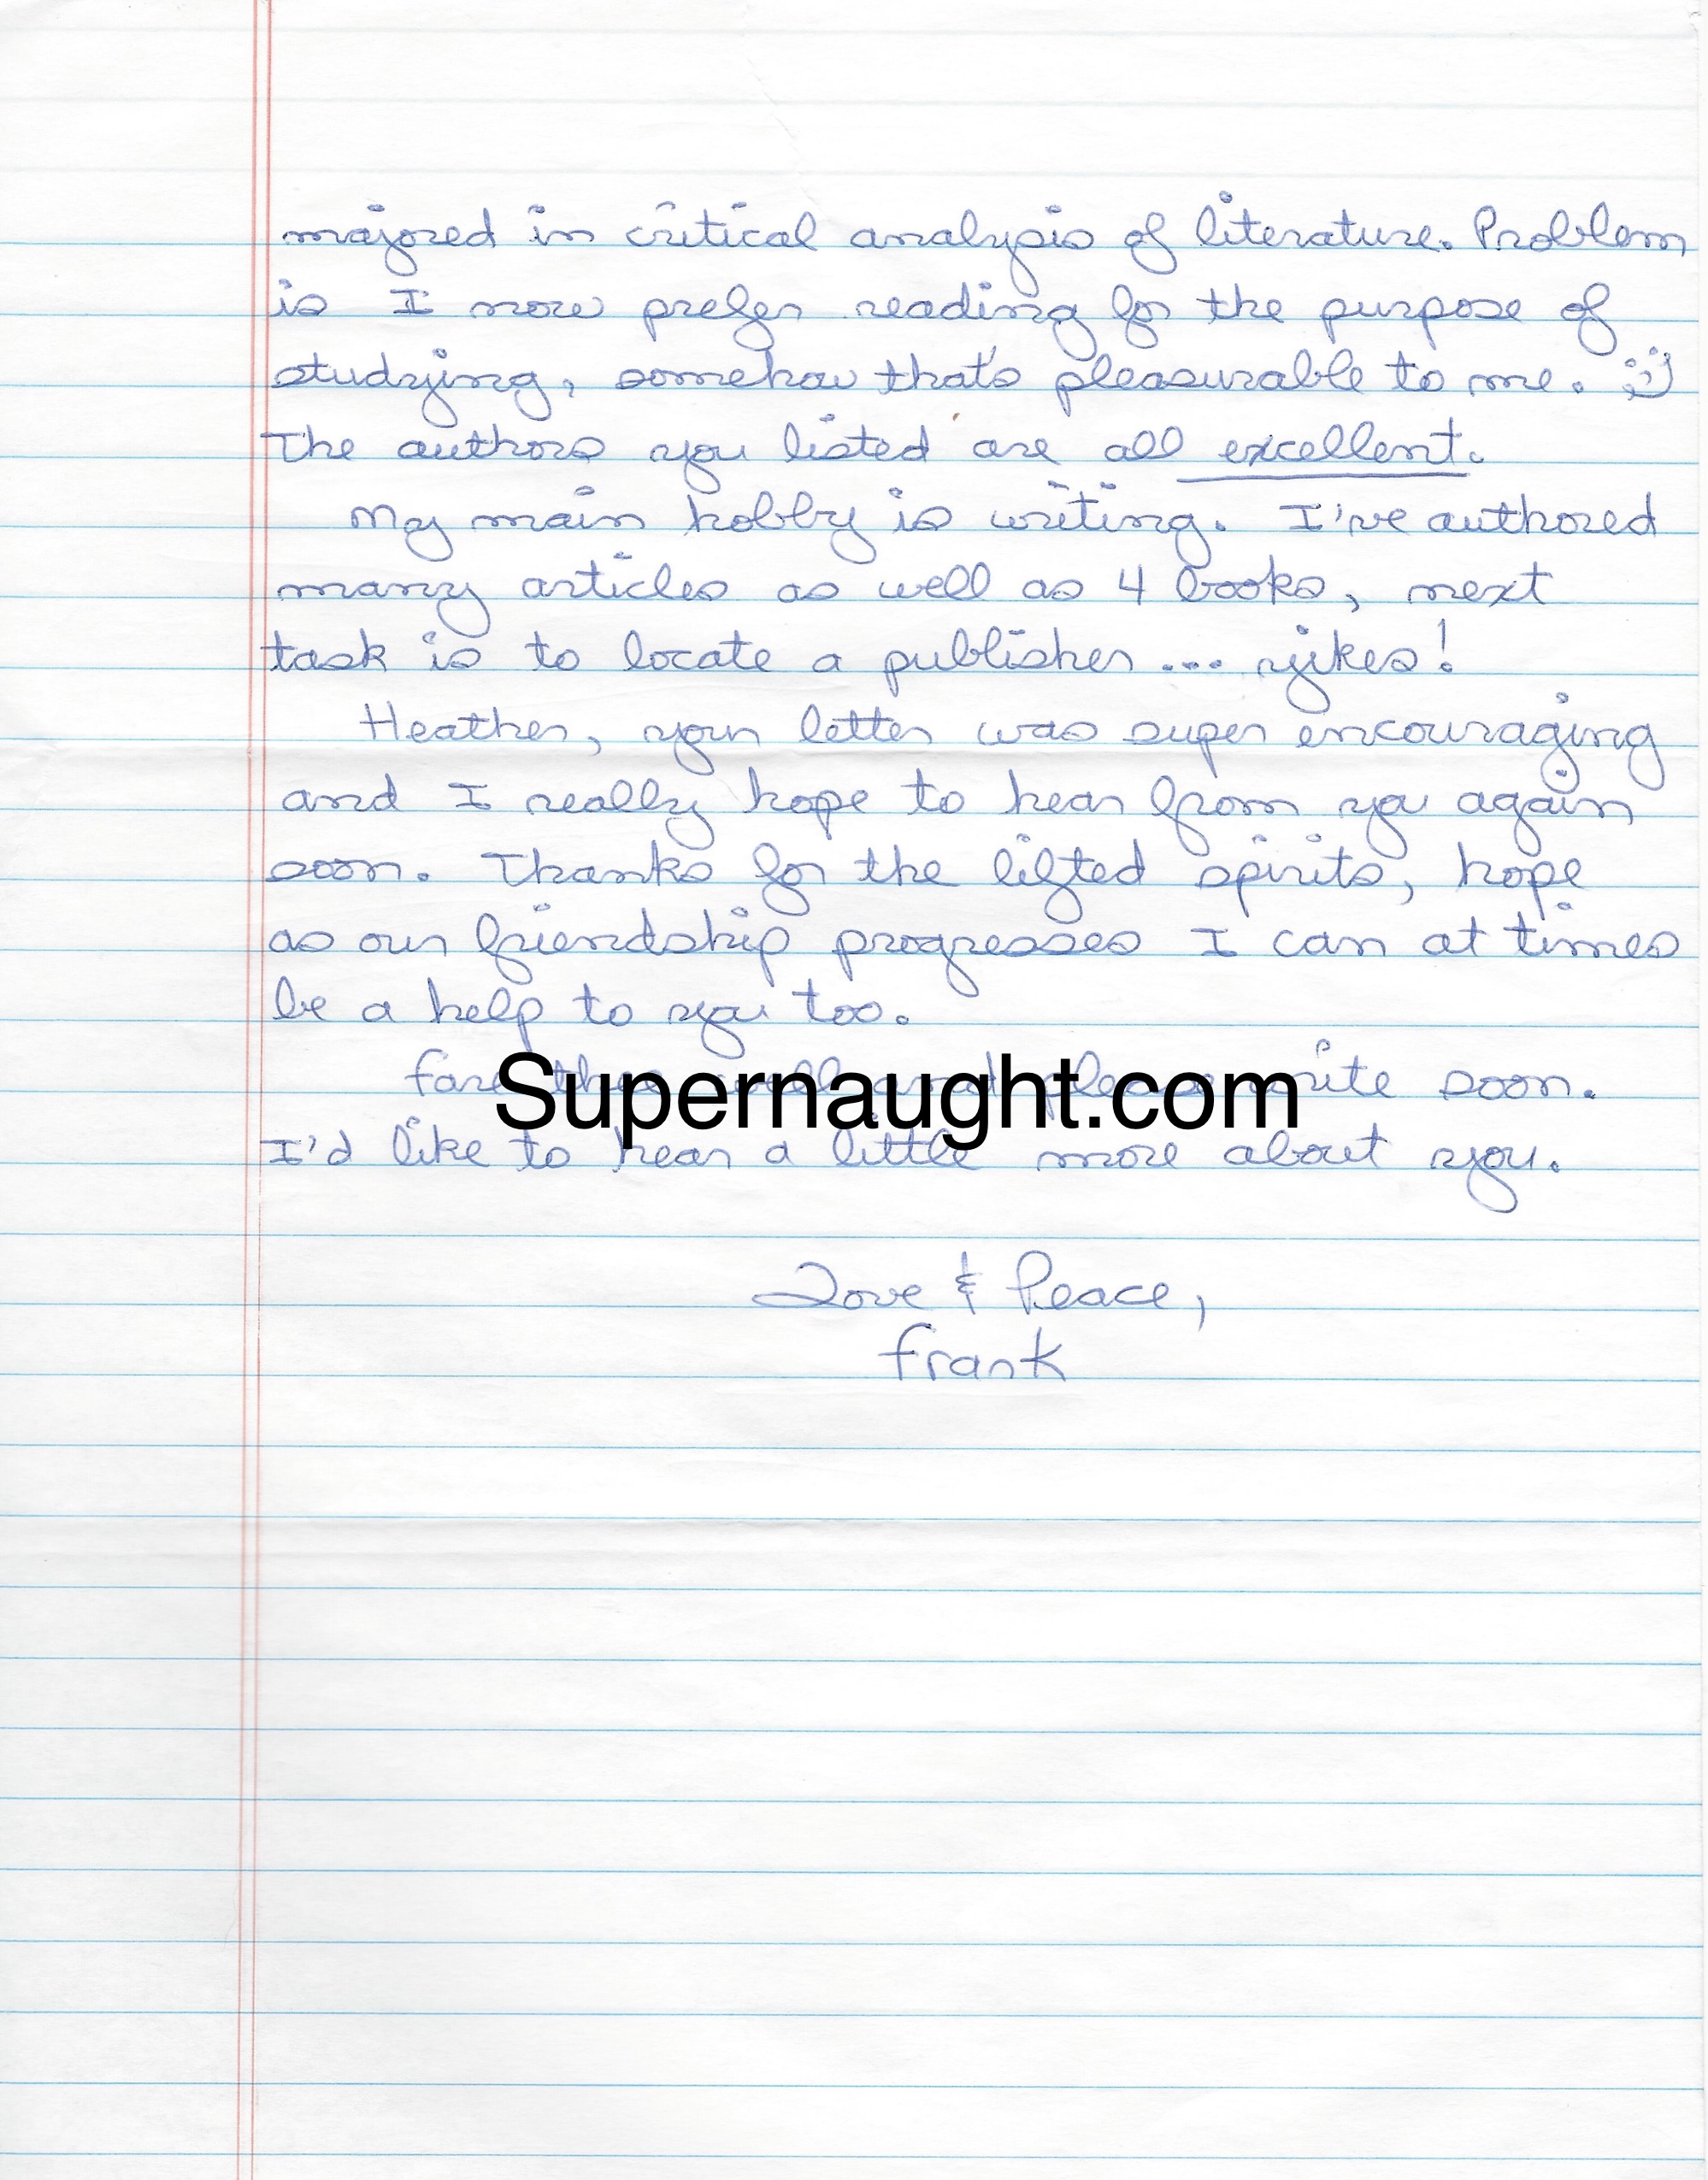 majored in critical analysis of literature. Problem
is I now prefer reading for the purpose of
studying, somehow that's pleasurable to me. :)
The authors you listed are all excellent.
My main hobby is writing. I've authored
many articles as well as 4 books, next
task is to locate a publisher... yikes!
Heather, your letter was super encouraging
and I really hope to hear from ya again
soon. Thanks for the lifted spirits, hope
as our friendship progresses I can at times
be a help to ya too.
Fare thee well and please write soon.
Supernaught.com
I'd like to hear a little more about you.
Love & Peace,
Frank